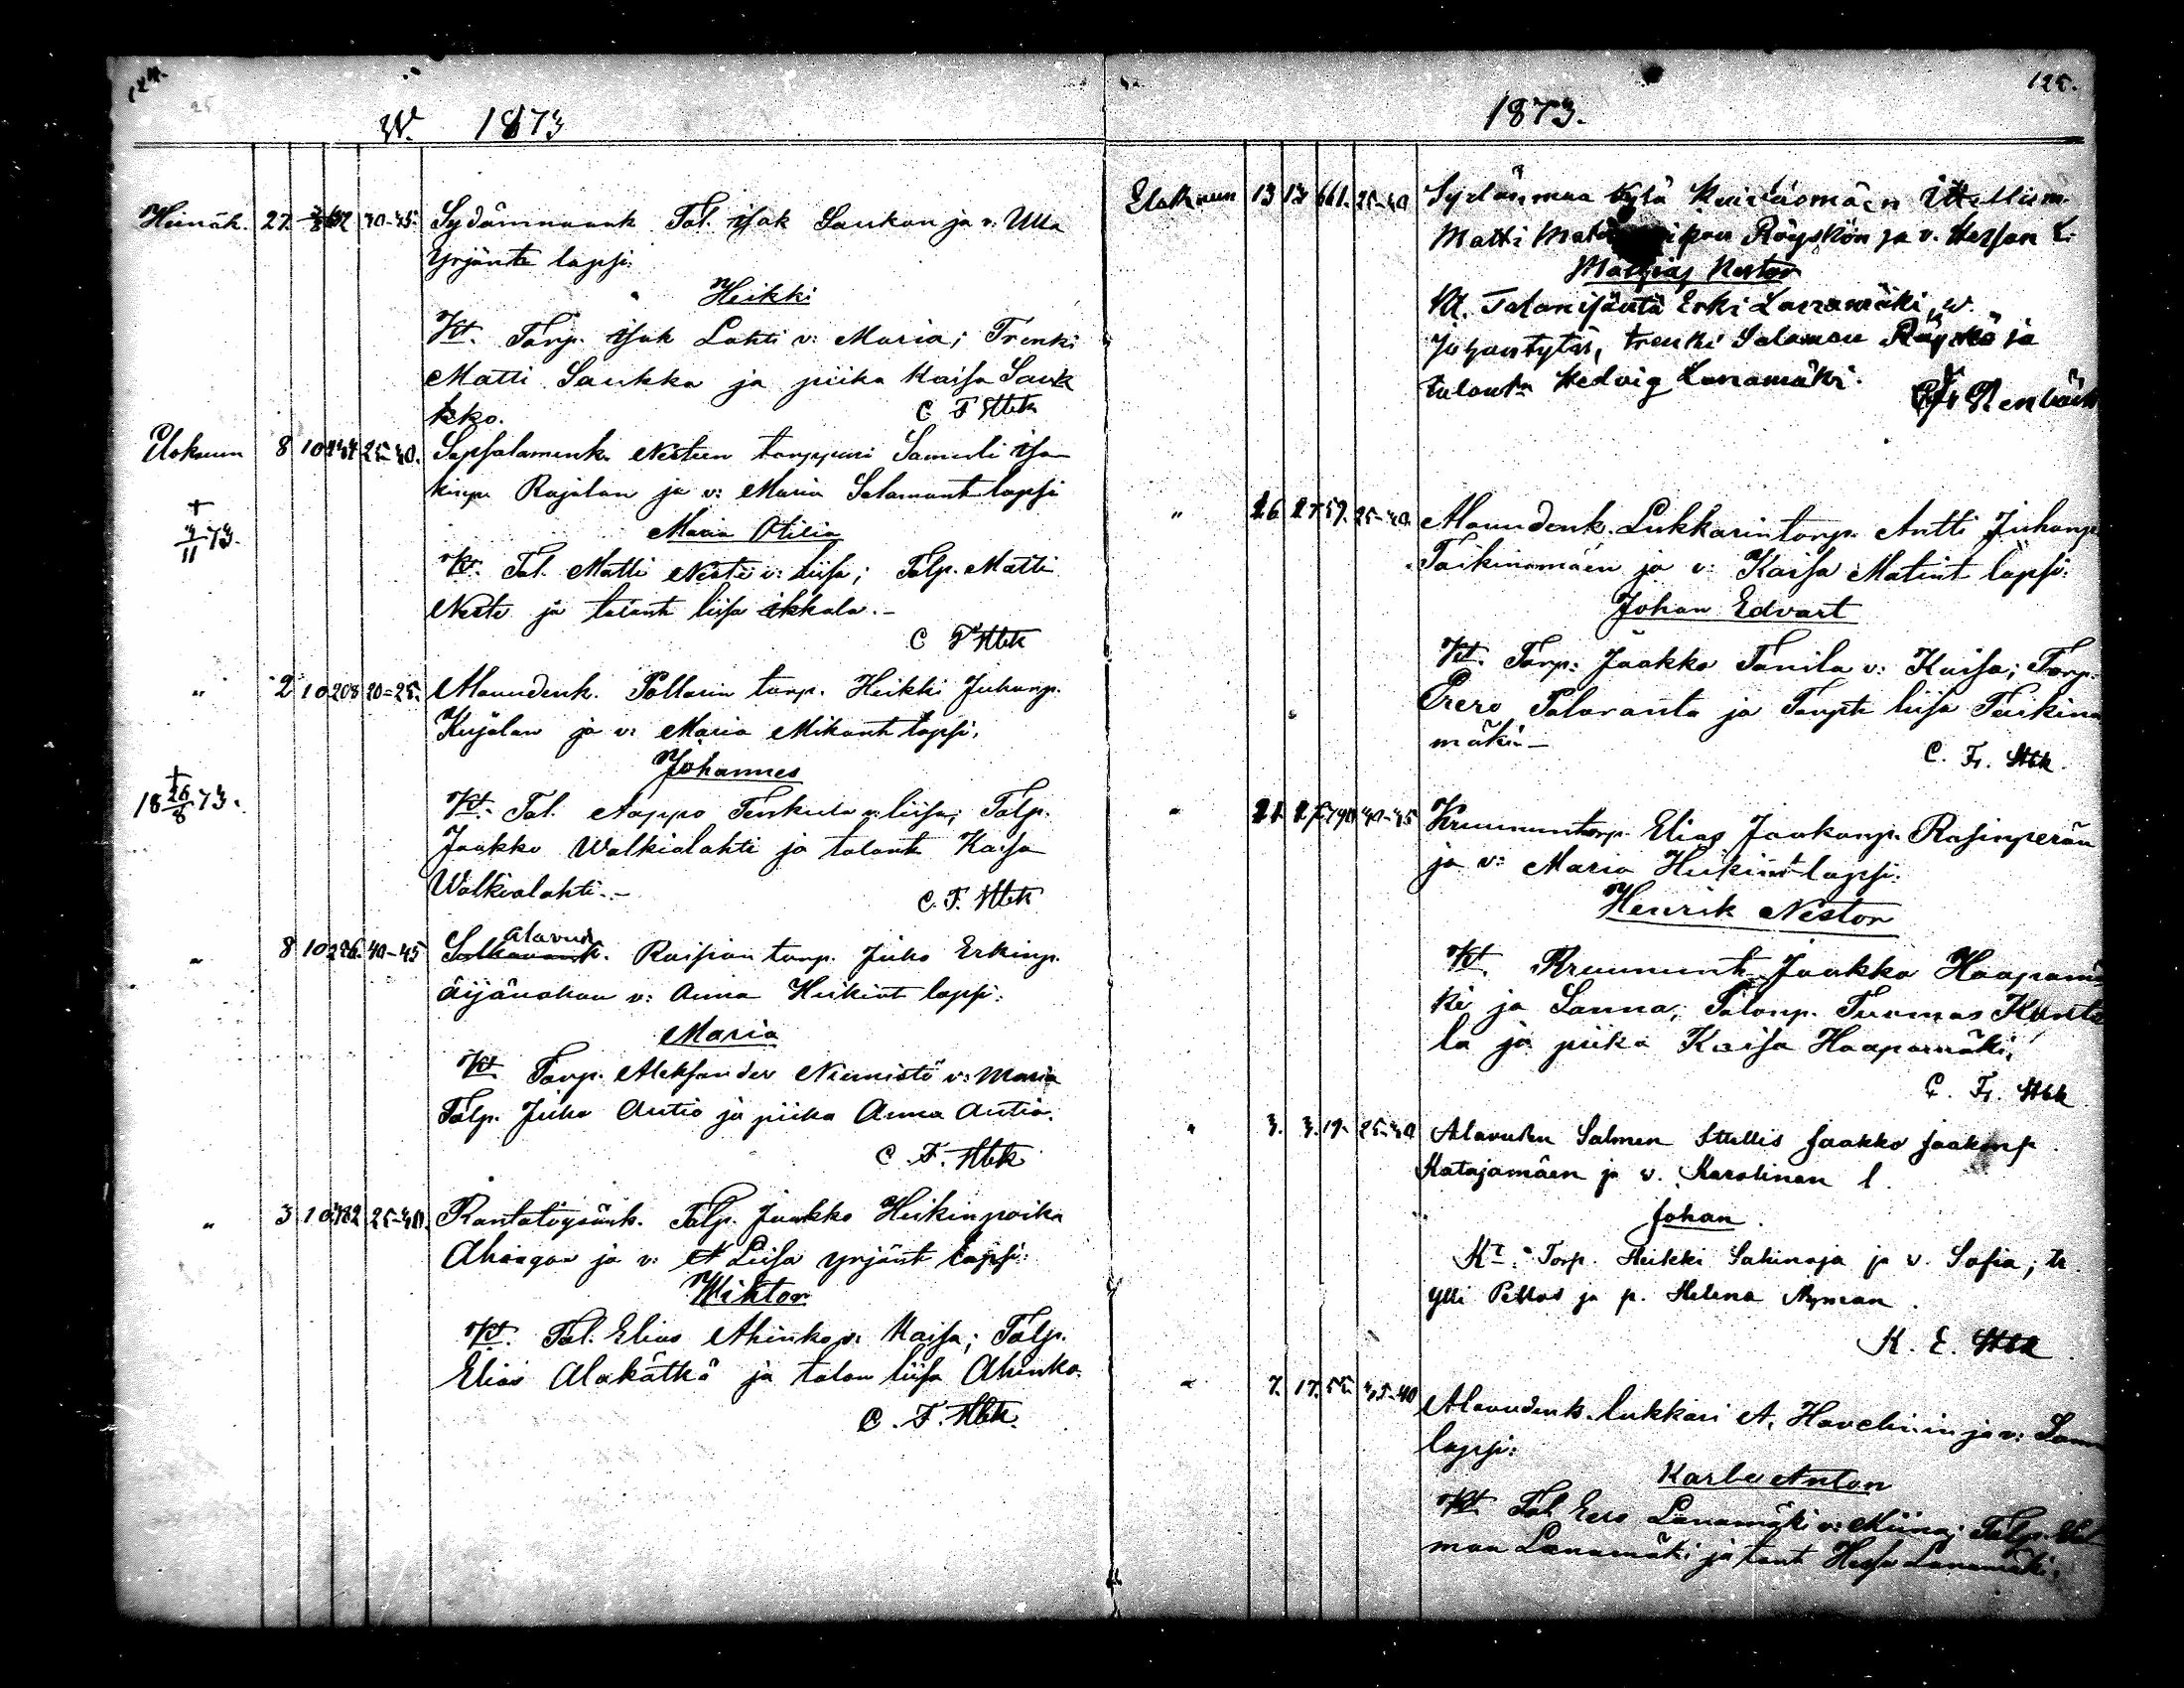 124.
W. 1873
Heinäk. 27. 3/8 30-35. Sydänmaank Tal. Isak Saukon ja v. Ulla
Yrjönt lapsi:
Heikki
Kt. Torp. Isak Lahti v: Maria; Trenki
Matti Saukko ja piika Kaisa Sauk
kko. C F Stbk
Elokuun 8 10 25-40. Sapsalamenk. Nesteen torppari Samuli Isa
kinp. Rajalan ja v: Maria Salamont lapsi
† 4/11 73.
Maria Otilia
Kt. Tal. Matti Neste v: Liisa; Talp. Matti
Neste ja talont Liisa Ikkala.-
C F Stbk
" 2 10 208 20-25. Alavudenk. Pollarin torp. Heikki Juhanp.
Kujalan ja v: Maria Mikont lapsi.
Johannes
† 18 26/8 73.
Kt. Tal. Aappo Tenkula v: Liisa; Talp.
Jaakko Walkialahti ja talont Kaisa
Walkialahti.- C. F. Stbk
" 8 10 226. 40-45 Alavud. Raision torp. Juho Erkinp.
Äijänahon v: Anna Heikint lapsi:
Maria
Kt Torp. Aleksander Niemistö v: Maria
Talp. Juho Antio ja piika Anna Antio.
C. F. Stbk
" 3 10 182 25-40. Rantatöysänk. Talp. Jaakko Heikinpoika
Ahingon ja v: A Liisa Yrjönt lapsi:
Wiktor
Kt. Tal. Elias Ahinko v: Kaisa; Talp.
Elias Alakätkä ja talon Liisa Ahinko.
C. F. Stbk.
125.
1873.
Elokuun 13 13 661. 25-40 Sydänmaa kylä
Matti Röyskön ja v. L:
Mathias Nestor
Kt. Talonisäntä Erki Lanamäki, w.
trenki Salomon Röyskö ja
talont. Hedvig Lanamäki.
" 26 27 59. 25-40. Alavudenk. Lukkarin torp. Antti Juhanp
Taikinamäen ja v: Kaisa Matint lapsi:
Johan Edvart
Kt. Torp: Jaakko Tanila v: Kaisa; Torp.
Erero Paloranta ja Torpt. Liisa Taikina
mäki.- C. Fr. Stbk.
" 21. 27 790 40-45 Kruununtorp. Elias Jaakonp. Rasinperän
ja v: Maria Heikint lapsi:
Henrik Nestor
Kt. Kruununt. Jaakko Haapamä
ki ja Sanna; Talonp. Tuomas Kunta
la ja piika Kaisa Haapamäki.
C. Fr. Stbk
" 3. 3. 19. 25-30 Alavuden Salmen Ittellis Jaakko Jaakonp.
Katajamäen ja v. Karolinan l.
Johan.
Kt: Torp. Heikki Sahinoja ja v. Sofia; tr.
Ylli Peltos ja p. Helena Nyman.
K. E. Stbk.
" 7. 17. 55. 35-40 Alavudenk. lukkari A. Havelinin ja v: Sann
lapsi:
Karle Anton
Kt. Tal. Eero Lanamäki v: Miina; Talp.
maa Lanamäki ja tant Lanamäki.